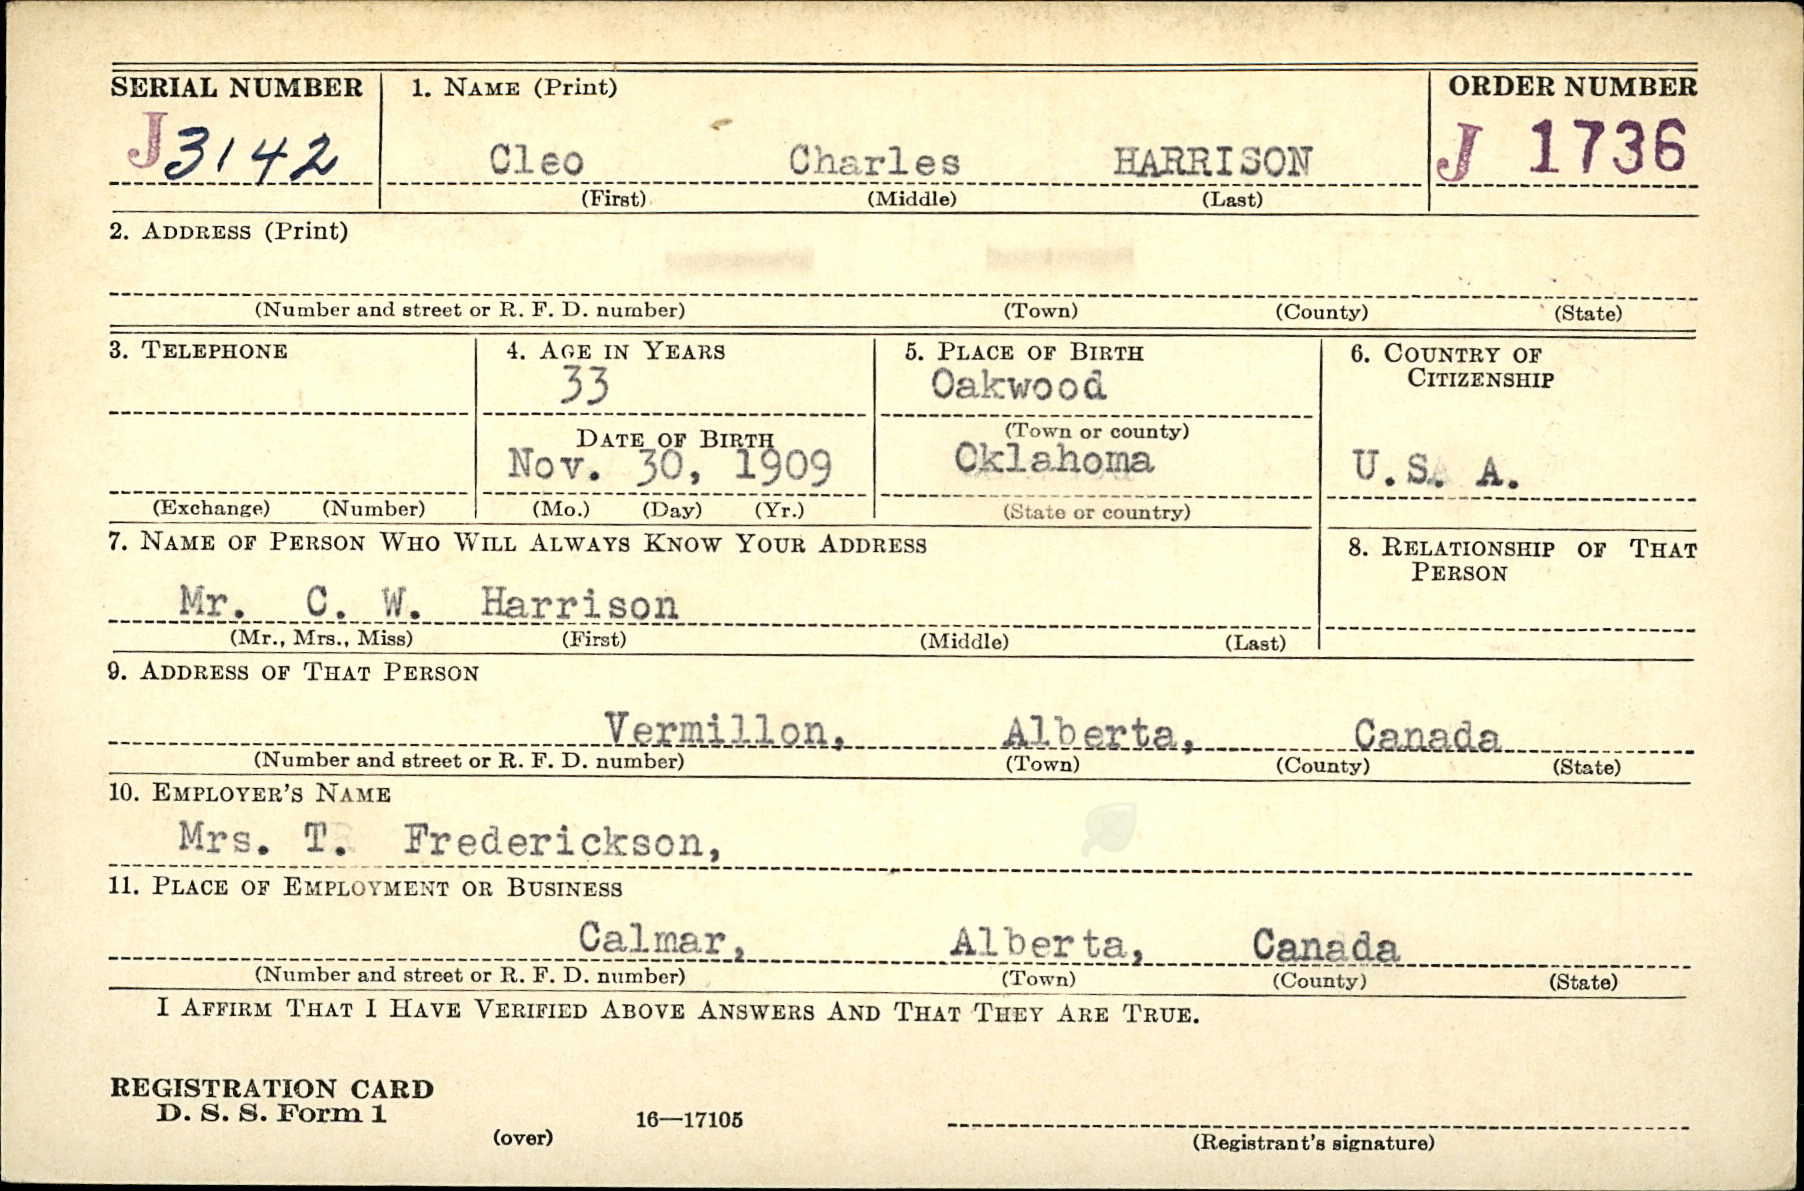 SERIAL NUMBER 1. NAME (Print) ORDER NUMBER
J 3142 Cleo Charles HARRISON J 1736
(First) (Middle) (Last)
2. ADDRESS (Print)
(Number and street or R. F. D. number) (Town) (County) (State)
3. TELEPHONE 4. AGE IN YEARS 5. PLACE OF BIRTH 6. COUNTRY OF CITIZENSHIP
33 Oakwood
DATE OF BIRTH (Town or county)
Nov. 30, 1909 Oklahoma U.S. A.
(Exchange) (Number) (Mo.) (Day) (Yr.) (State or country)
7. NAME OF PERSON WHO WILL ALWAYS KNOW YOUR ADDRESS 8. RELATIONSHIP OF THAT PERSON
Mr. C. W. Harrison
(Mr., Mrs., Miss) (First) (Middle) (Last)
9. ADDRESS OF THAT PERSON
Vermillon, Alberta, Canada
(Number and street or R. F. D. number) (Town) (County) (State)
10. EMPLOYER'S NAME
Mrs. T. Frederickson,
11. PLACE OF EMPLOYMENT OR BUSINESS
Calmar, Alberta, Canada
(Number and street or R. F. D. number) (Town) (County) (State)
I AFFIRM THAT I HAVE VERIFIED ABOVE ANSWERS AND THAT THEY ARE TRUE.
REGISTRATION CARD
D. S. S. Form 1 16—17105
(over) (Registrant's signature)